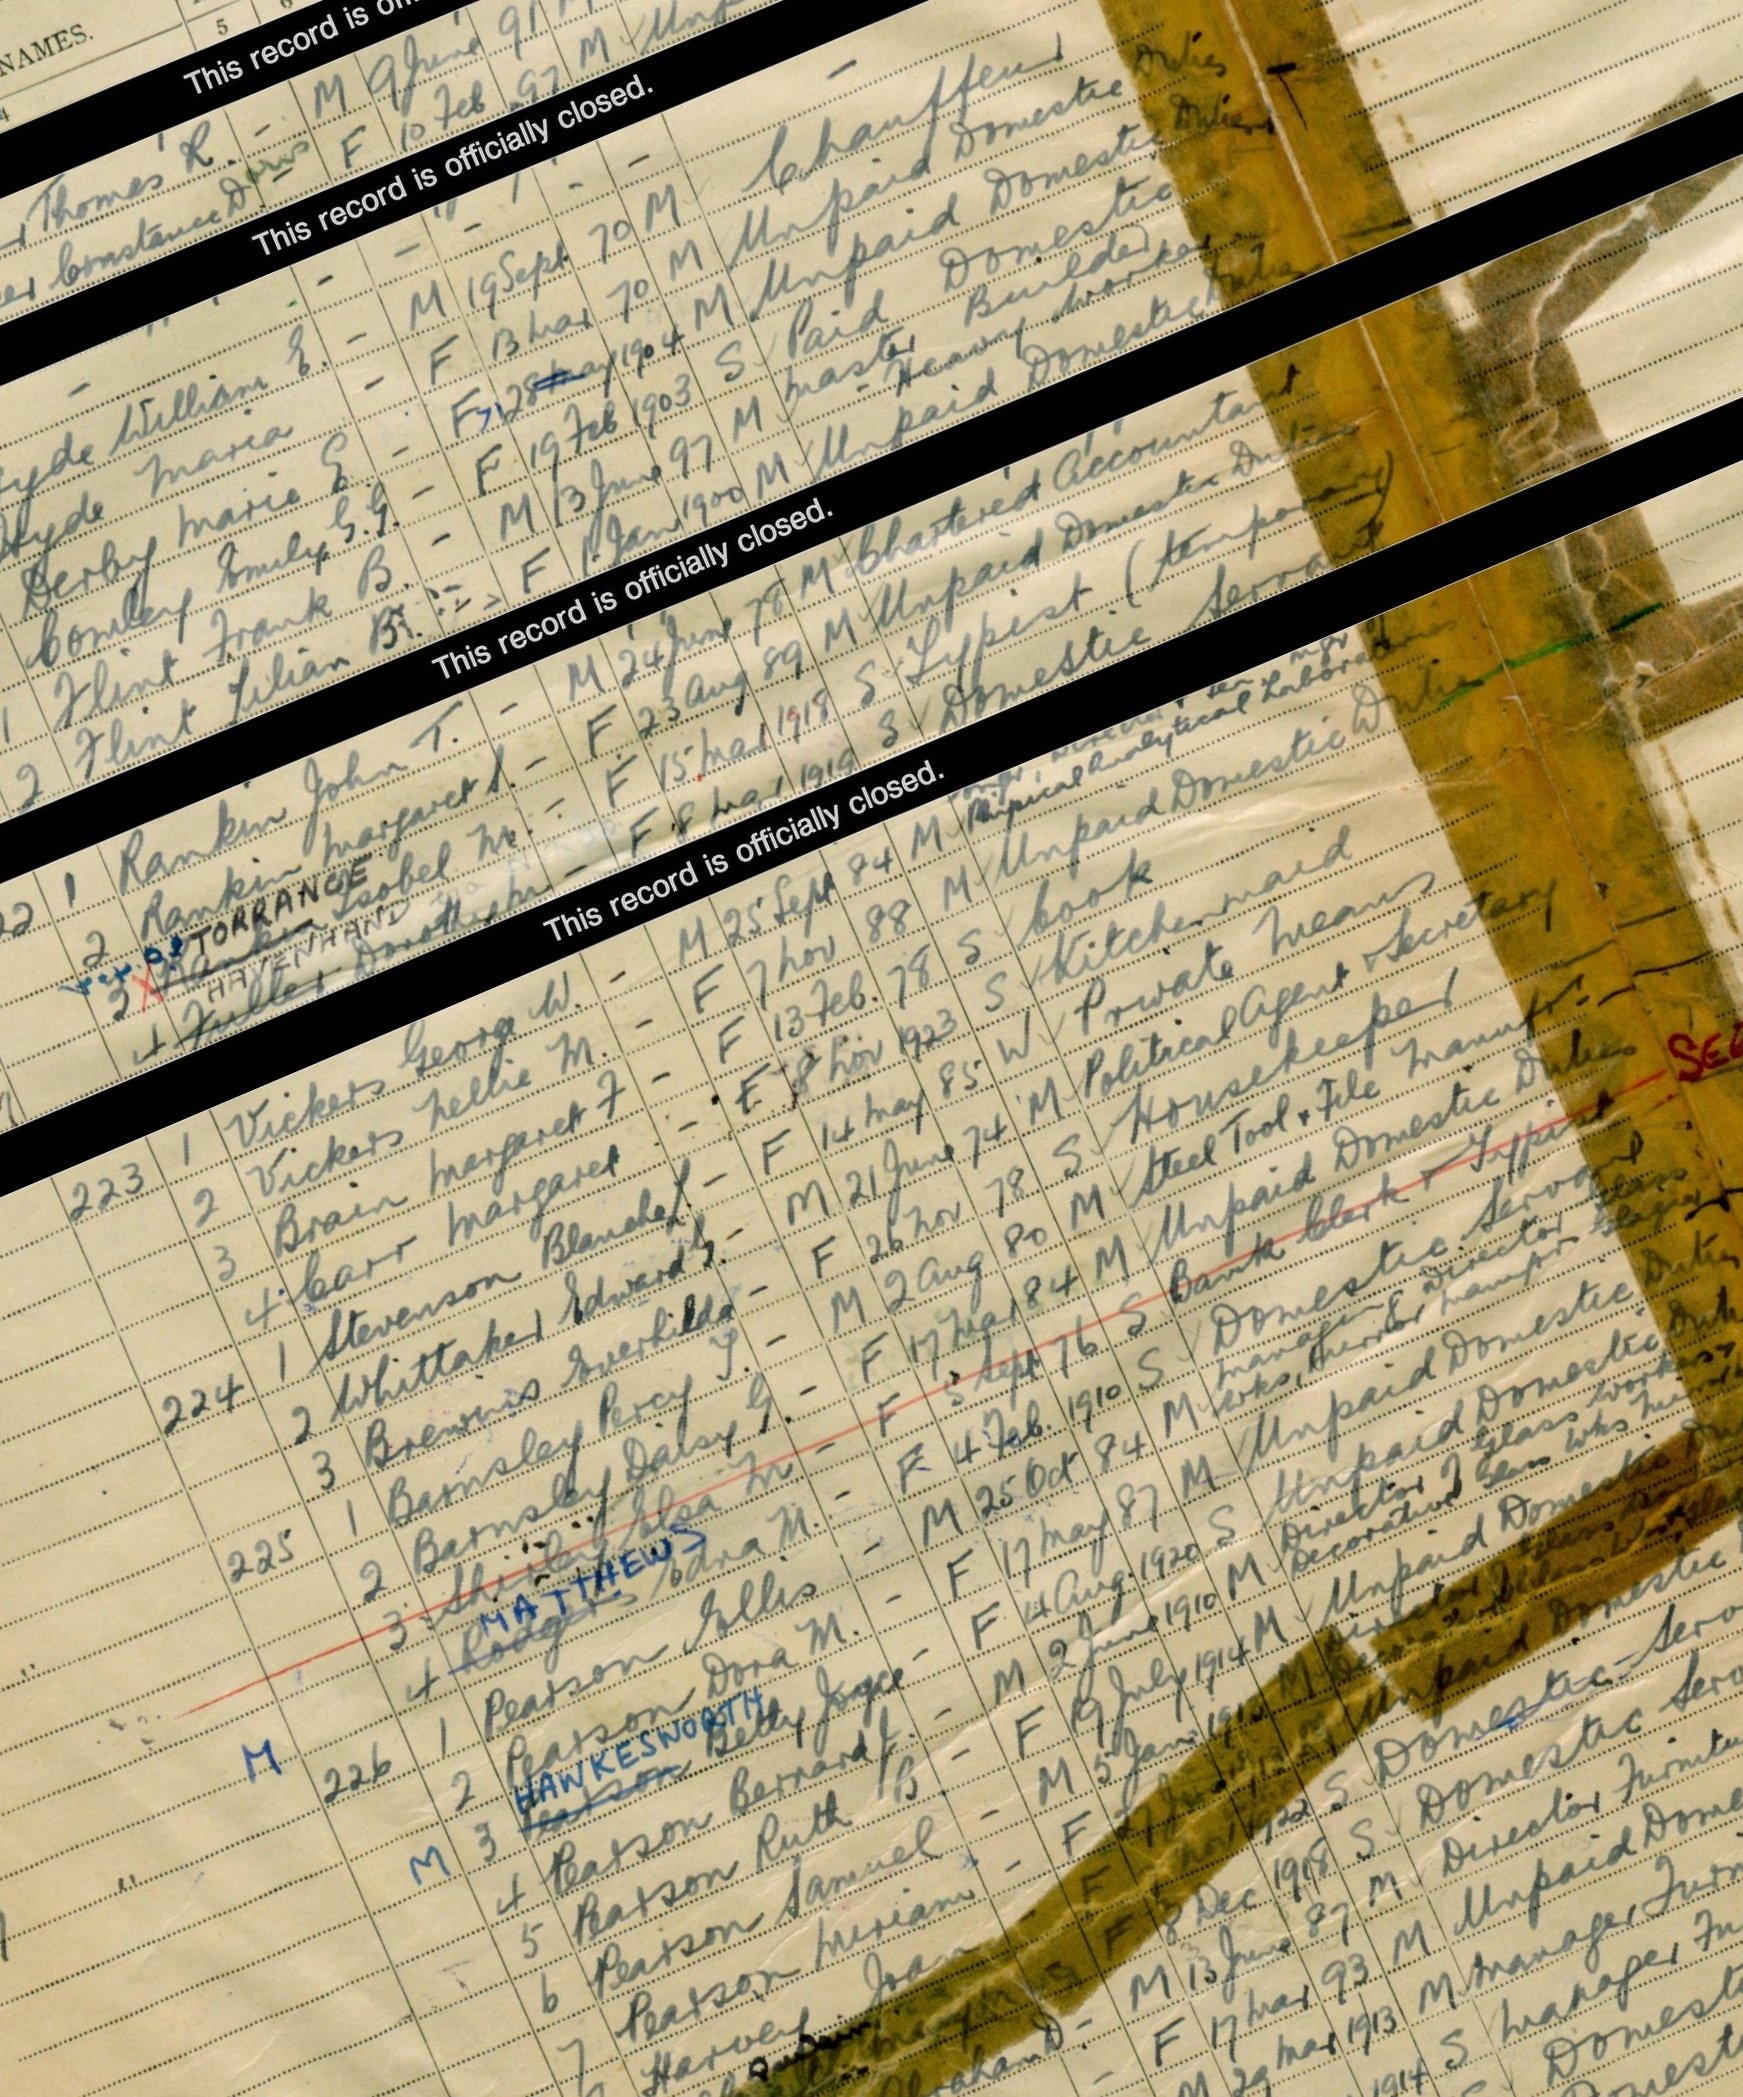 NAMES.
4
5
This record is
Thomas R. - M 9 June 91 M
Constance Doris F 10 Feb 97 M
This record is officially closed.
Hyde William E. - M 19 Sept 70 M Chauffeur
Hyde Maria - F 13 Mar 70 M Unpaid Domestic Duties
Derby Marie E - F 28 May 1904 M Unpaid Domestic Duties
Comley Emily G.G. - F 19 Feb 1903 S Paid Domestic
1 Flint Frank B. - M 13 June 97 M Master Builder
Heavy Worker
2 Flint Lilian B. F 1 Jan 1900 M Unpaid Domestic Duties
This record is officially closed.
22 1 Rankin John T. - M 24 June 78 M Chartered Accountant
2 Rankin Margaret S. - F 23 Aug 89 M Unpaid Domestic Duties
TORRANCE
3 Rankin Isobel M. - F 15 Mar 1918 S Typist (temporary)
HAVENHAND
4 Fuller Dorothy M - F 8 Mar 1919 S Domestic Servant
This record is officially closed.
223 1 Vickers George W. - M 25 Sept 84 M
Physical Analytical Laboratories
2 Vickers Nellie M. - F 7 Nov 88 M Unpaid Domestic Duties
3 Brain Margaret F - F 13 Feb. 78 S Cook
4 Carr Margaret - F 8 Nov 1923 S Kitchenmaid
224 1 Stevenson Blanche L. - F 14 May 85 W Private Means
2 Whittaker Edward S. - M 21 June 74 M Political Agent & Secretary
3 Brewins Everhilda - F 26 Nov 78 S Housekeeper
225 1 Barnsley Percy J. - M 2 Aug 80 M Steel Tool & File Manufr.
2 Barnsley Daisy G. - F 17 Mar 84 M Unpaid Domestic Duties
3 Shirley Elsa M - F 5 Sept 76 S Bank Clerk & Typist
SEE
MATTHEWS
4 Rodgers Edna M. - F 4 Feb. 1910 S Domestic Servant
M 226 1 Pearson Ellis - M 25 Oct 84 M Managing Director Glass
Wks, Mirror Manufr
2 Pearson Dora M. - F 17 May 87 M Unpaid Domestic Duties
HAWKESWORTH
M 3 Pearson Betty Joyce - F 14 Aug. 1920 S Unpaid Domestic Duties
4 Pearson Bernard L. - M 2 June 1910 M Director of Glass Works
Decorative Glass Wks
5 Pearson Ruth B - F 19 July 1914 M Unpaid Domestic
6 Pearson Samuel - M 5 Jan 1913 M Director of Glass
7 Pearson Miriam - F 27 M Unpaid Domestic
Harvey Joan - F Nov 1922 S Domestic Serv
F 8 Dec 1918 S Domestic Serv
Abraham D. - M 13 June 87 M Director Furnitu
- F 17 Mar 93 M Unpaid Dome
M 29 Mar 1913 M Manager, Furn
1914 S Manager Fu
Domesti